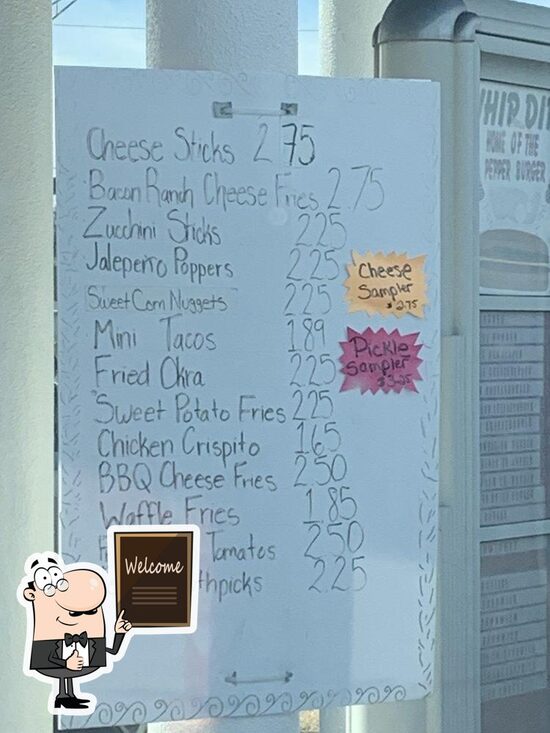 Cheese Sticks 2.75
Bacon Ranch Cheese Fries 2.75
Zucchini Sticks 225
Jaleperro Poppers 225
Sweet Corn Nuggets 225
Mini Tacos 1.89
Fried Okra 225
Sweet Potato Fries 225
Chicken Crispito 1.65
BBQ Cheese Fries 2.50
Waffle Fries 1.85
Tomatos 2.50
thpicks 2.25
Cheese
Sampler
$2.75
Pickle
Sampler
Welcome
WHIP DI
HOME OF THE
PEPPER BURGER